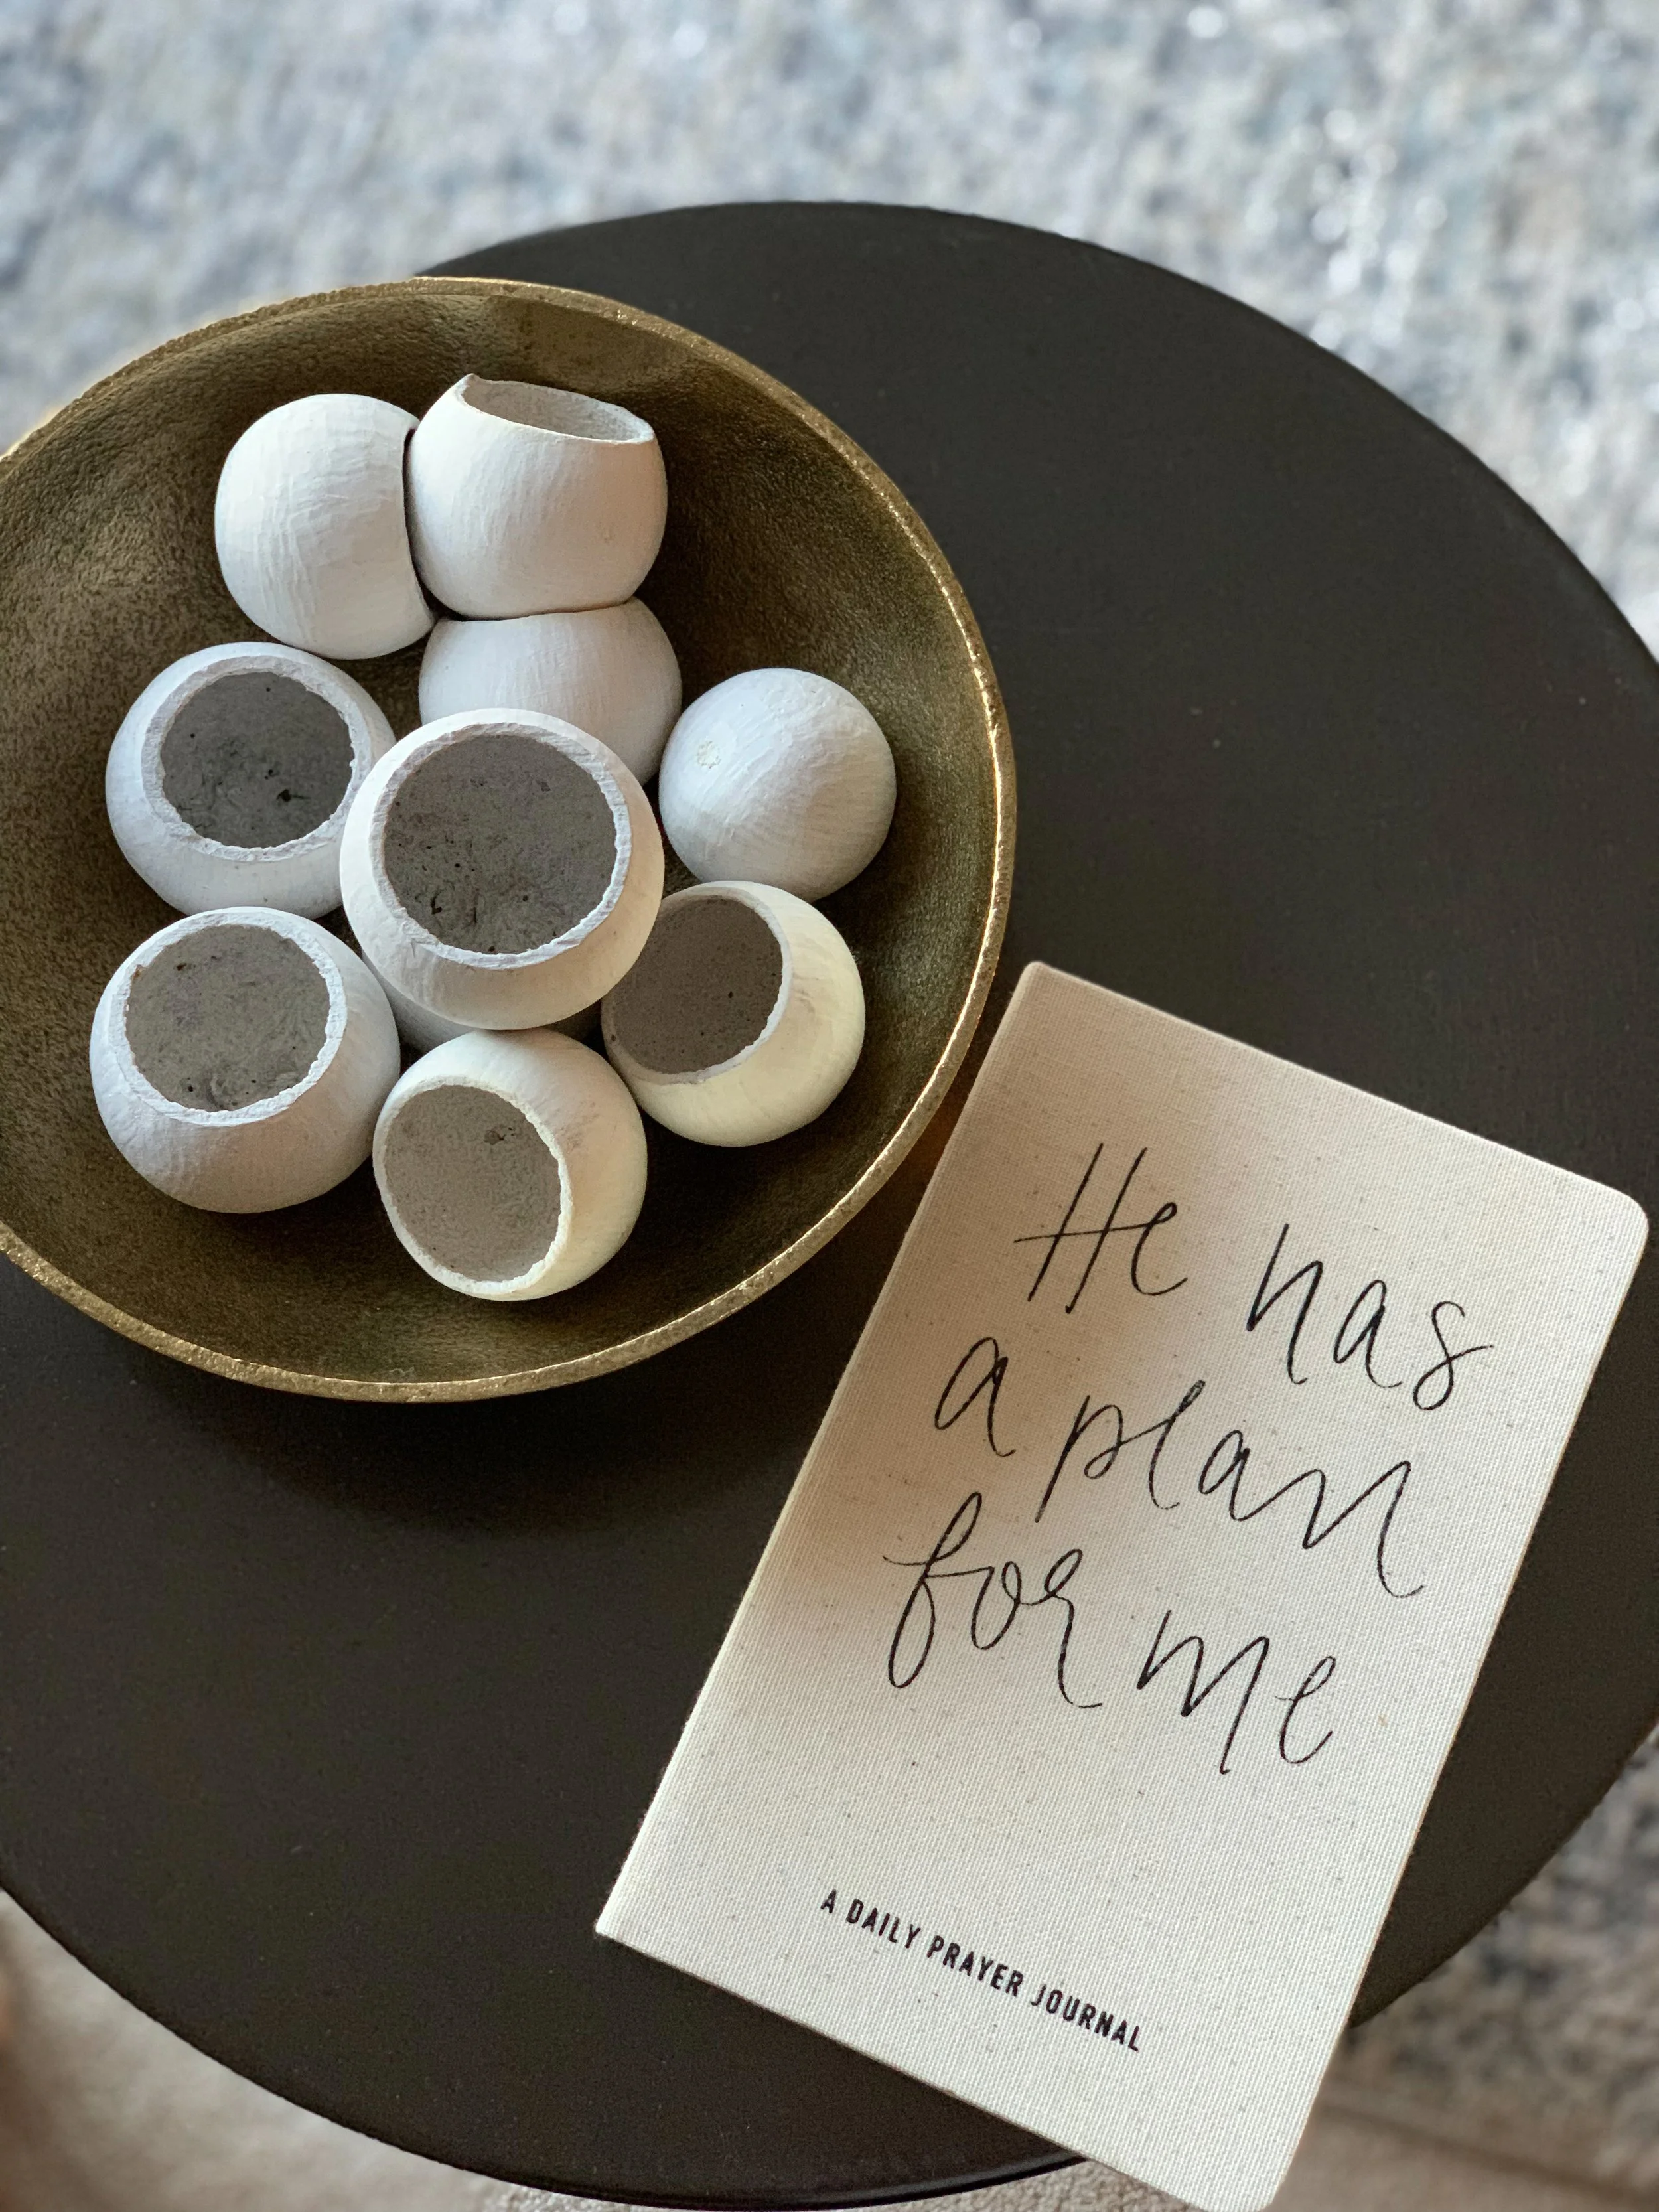 He has
a plan
for me
A DAILY PRAYER JOURNAL